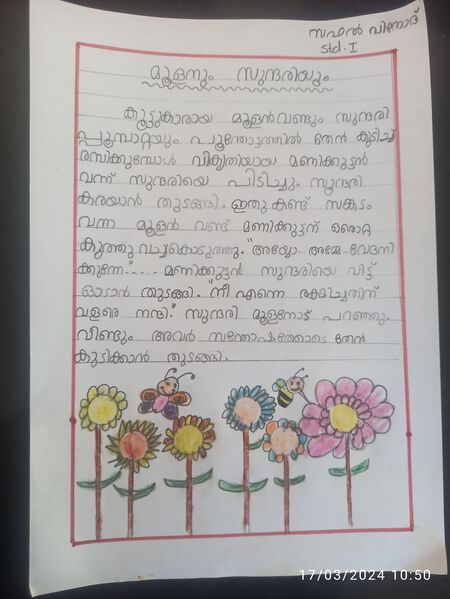 സഫൽ വിനോദ്
Std. I
മൂളനും സുന്ദരിയും
കൂട്ടുകാരായ മൂളൻവണ്ടും സുന്ദരി
പ്പൂമ്പാറ്റയും പൂന്തോട്ടത്തിൽ തേൻ കുടിച്ച്
രസിക്കുമ്പോൾ വികൃതിയായ മണിക്കുട്ടൻ
വന്ന് സുന്ദരിയെ പിടിച്ചും സുന്ദരി
കരയാൻ തുടങ്ങി. ഇതു കണ്ട് സങ്കടം
വന്ന മൂളൻ വണ്ട് മണിക്കുട്ടന് ഒരൊറ്റ
കുത്തു വച്ചുകൊടുത്തു. "അയ്യോ... അമ്മേ... വേദനി
ക്കുന്നേ"...... മണിക്കുട്ടൻ സുന്ദരിയെ വിട്ട്
ഓടാൻ തുടങ്ങി. "നീ എന്നെ രക്ഷിച്ചതിന്
വളരെ നന്ദി." സുന്ദരി മൂളനോട് പറഞ്ഞു.
വീണ്ടും അവർ സന്തോഷത്തോടെ തേൻ
കുടിക്കാൻ തുടങ്ങി.
17/03/2024 10:50